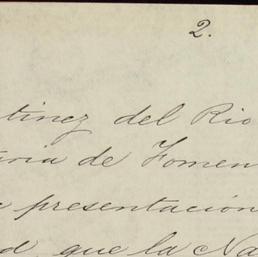 2.
tinez del Rio
taria de Fomen
a presentación
d, que la Na